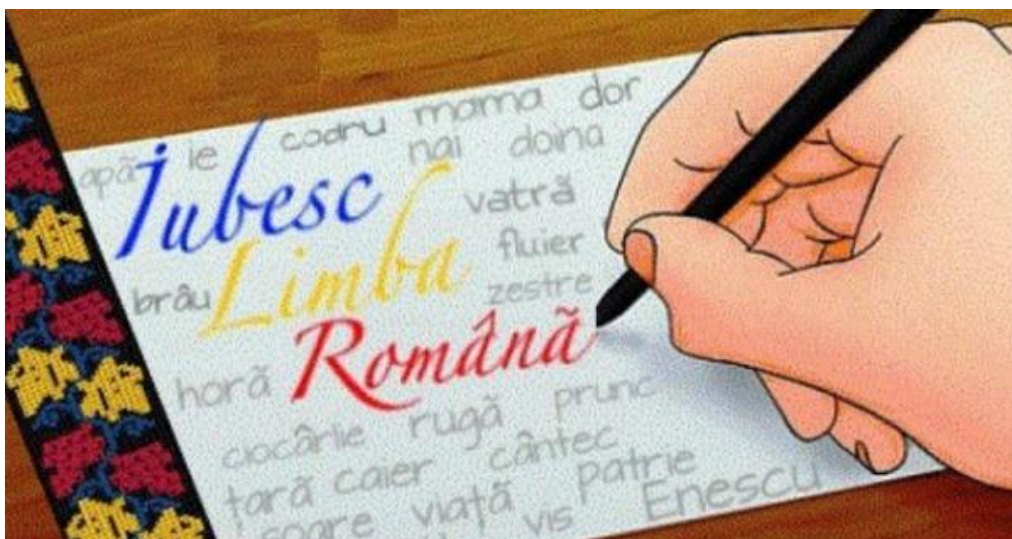 mama dor
apă ie codru nai doina
Iubesc vatră
Limba fluier
brâu zestre
Română
horă
ciocârlie rugă prunc
țară caier cântec
soare viață vis patrie Enescu